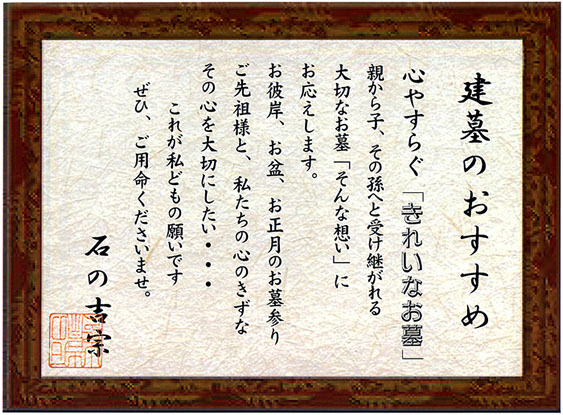 建墓のおすすめ
心やすらぐ「きれいなお墓」
親から子、その孫へと受け継がれる
大切なお墓「そんな想い」に
お応えします。
お彼岸、お盆、お正月のお墓参り
ご先祖様と、私たちの心のきずな
その心を大切にしたい・・・
これが私どもの願いです
ぜひ、ご用命くださいませ。
石の吉宗